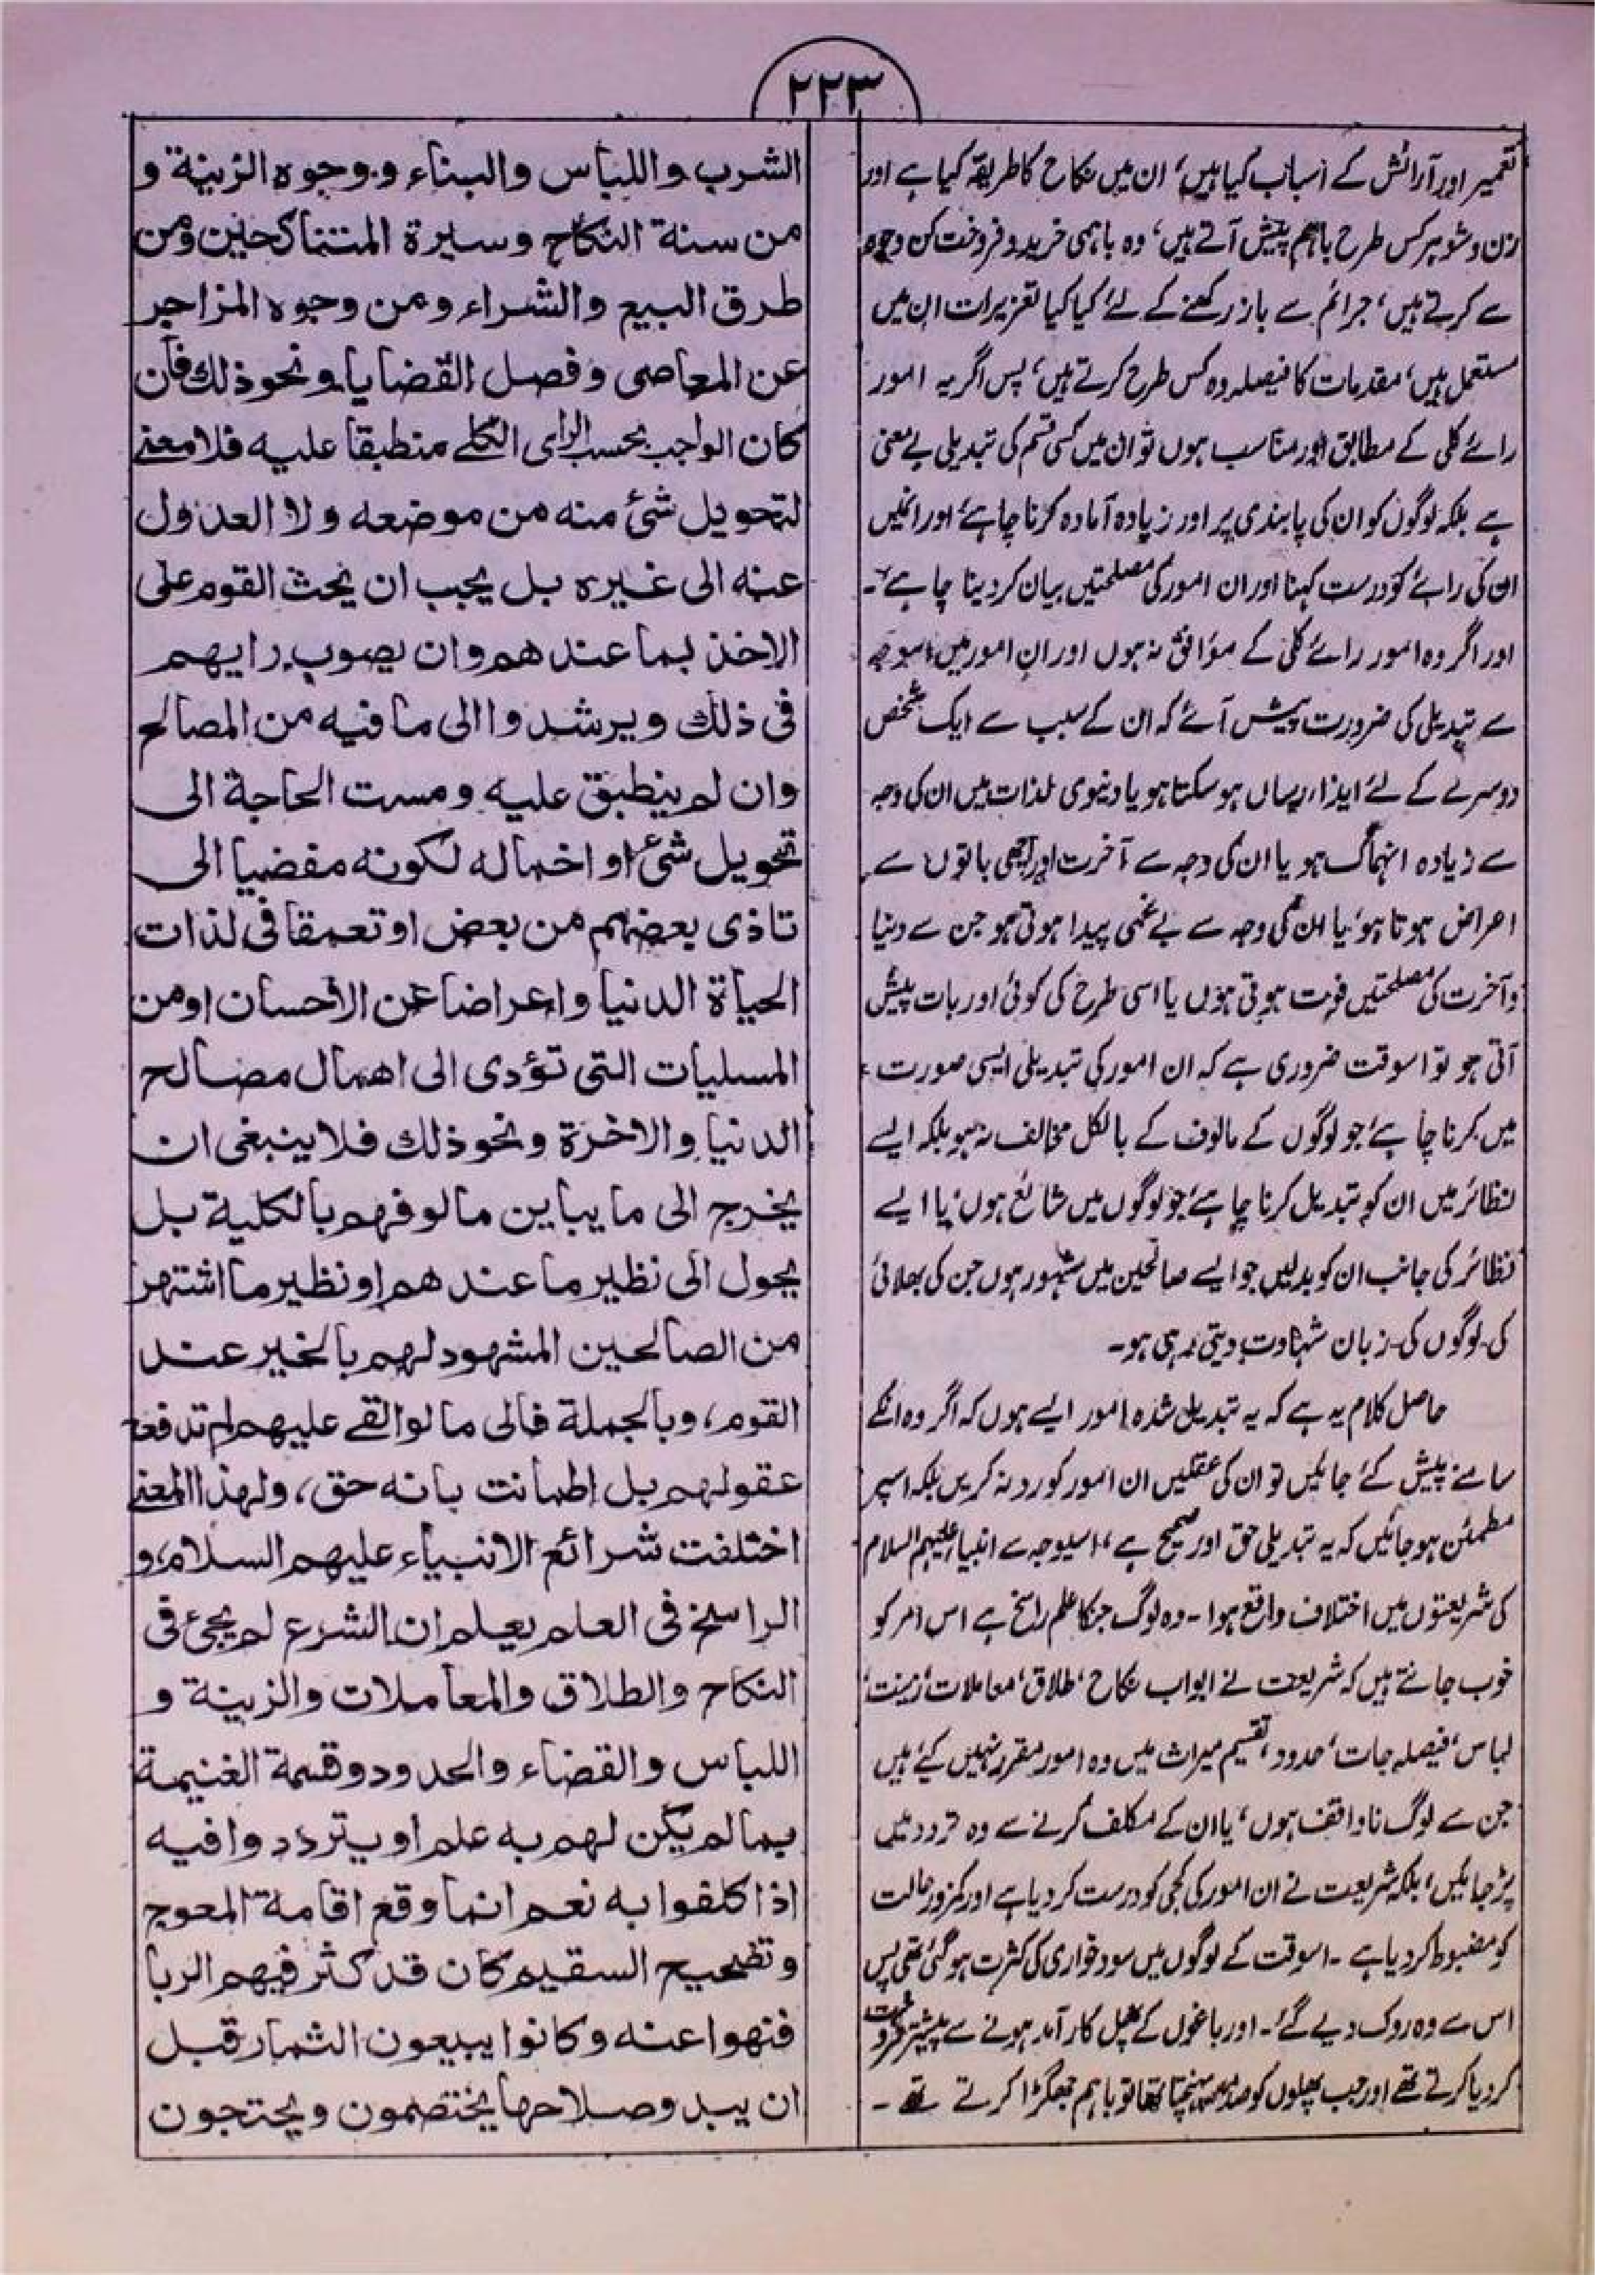 ۲۲۳
تعمیر اور آرائش کے اسباب کیا ہیں، ان میں نکاح کا طریقہ کیا ہے اور
زن و شوہر کس طرح باہم پیش آتے ہیں، وہ باہمی خرید و فروخت کن وجوہ
سے کرتے ہیں، جرائم سے باز رکھنے کے لئے کیا کیا تعزیرات ان میں
مستعمل ہیں، مقدمات کا فیصلہ وہ کس طرح کرتے ہیں، پس اگر یہ امور
رائے کلی کے مطابق اور مناسب ہوں تو ان میں کسی قسم کی تبدیلی بے معنی
ہے بلکہ لوگوں کو ان کی پابندی پر اور زیادہ آمادہ کرنا چاہئے اور انہیں
ان کی رائے کو درست کہنا اور ان امور کی مصلحتیں بیان کر دینا چاہئے۔
اور اگر وہ امور رائے کلی کے موافق نہ ہوں اور ان امور میں اسوجہ
سے تبدیلی کی ضرورت پیش آئے کہ ان کے سبب سے ایک شخص
دوسرے کے لئے ایذا رساں ہو سکتا ہو یا دنیوی لذات میں ان کی وجہ
سے زیادہ انہماک ہو یا ان کی وجہ سے آخرت اور اچھی باتوں سے
اعراض ہوتا ہو، یا ان کی وجہ سے بے غمی پیدا ہوتی ہو جن سے دنیا
و آخرت کی مصلحتیں فوت ہوتی ہوں یا اسی طرح کی کوئی اور بات پیش
آتی ہو تو اسوقت ضروری ہے کہ ان امور کی تبدیلی ایسی صورت
میں کرنا چاہئے جو لوگوں کے مالوف کے بالکل مخالف نہ ہو بلکہ ایسے
نظائر میں ان کو تبدیل کرنا چاہئے جو لوگوں میں شائع ہوں، یا ایسے
نظائر کی جانب ان کو بدلیں جو ایسے صالحین میں مشہور ہوں جن کی بھلائی
کی لوگوں کی زبان شہادت دیتی رہی ہو۔
حاصل کلام یہ ہے کہ یہ تبدیل شدہ امور ایسے ہوں کہ اگر وہ انکے
سامنے پیش کئے جائیں تو ان کی عقلیں ان امور کو رد نہ کریں بلکہ اسپر
مطمئن ہو جائیں کہ یہ تبدیلی حق اور صحیح ہے، اسیوجہ سے انبیاء علیہم السلام
کی شریعتوں میں اختلاف واقع ہوا۔ وہ لوگ جنکا علم راسخ ہے اس امر کو
خوب جانتے ہیں کہ شریعت نے ابواب نکاح، طلاق، معاملات، زینت،
لباس، فیصلہ جات، حدود، تقسیم میراث میں وہ امور مقرر نہیں کیے ہیں
جن سے لوگ ناواقف ہوں، یا ان کے مکلف کرنے سے وہ تردد میں
پڑ جائیں، بلکہ شریعت نے ان امور کی کجی کو درست کر دیا ہے اور کمزور حالت
کو مضبوط کر دیا ہے۔ اسوقت کے لوگوں میں سود خواری کی کثرت ہو گئی تھی پس
اس سے وہ روک دیے گئے۔ اور باغوں کے پھل کار آمد ہونے سے پیشتر فروخت
کر دیا کرتے تھے اور جب پھلوں کو صدمہ پہنچتا تھا تو باہم جھگڑا کرتے تھے۔
الشرب واللباس والبناء ووجوہ الزینۃ و
من سنۃ النکاح وسیرۃ المتناکحین ومن
طرق البیع والشراء ومن وجوہ المزاجر
عن المعاصی وفصل القضایا ونحو ذلك فان
كان الواجب بحسب الرای الکلے منطبقا علیہ فلا معنے
لتحویل شئ منه من موضعه ولا العدول
عنه الی غیرہ بل یجب ان یحث القوم علی
الاخذ بما عندهم وان یصوب رایهم
فی ذلك ویرشدوا الی ما فیہ من المصالح
وان لم ینطبق علیہ ومست الحاجة الی
تحویل شئ او اخماله لکونہ مفضیا الی
تاذی بعضهم من بعض او تعمقا فی لذات
الحیاۃ الدنیا واعراضا عن الاحسان او من
المسلیات التی تؤدی الی اهمال مصالح
الدنیا والاخرۃ ونحو ذلك فلا ینبغی ان
یخرج الی ما یباین مالوفهم بالکلیة بل
یحول الی نظیر ما عندهم او نظیر ما اشتهر
من الصالحین المشهود لهم بالخیر عند
القوم، وبالجملة فالی ما لو القے علیهم لم تدفعه
عقولهم بل اطمانت بانه حق، ولهذا المعنے
اختلفت شرائع الانبیاء علیهم السلام، و
الراسخ فی العلم یعلم ان الشرع لم یجئ فی
النکاح والطلاق والمعاملات والزینة و
اللباس والقضاء والحدود وقسمة الغنیمة
بما لم یکن لهم به علم او یترددوا فیه
اذا کلفوا به نعم انما وقع اقامة المعوج
وتصحیح السقیم کان قد کثر فیهم الربا
فنهوا عنه وکانوا یبیعون الثمار قبل
ان یبدو صلاحها یختصمون ویحتجون